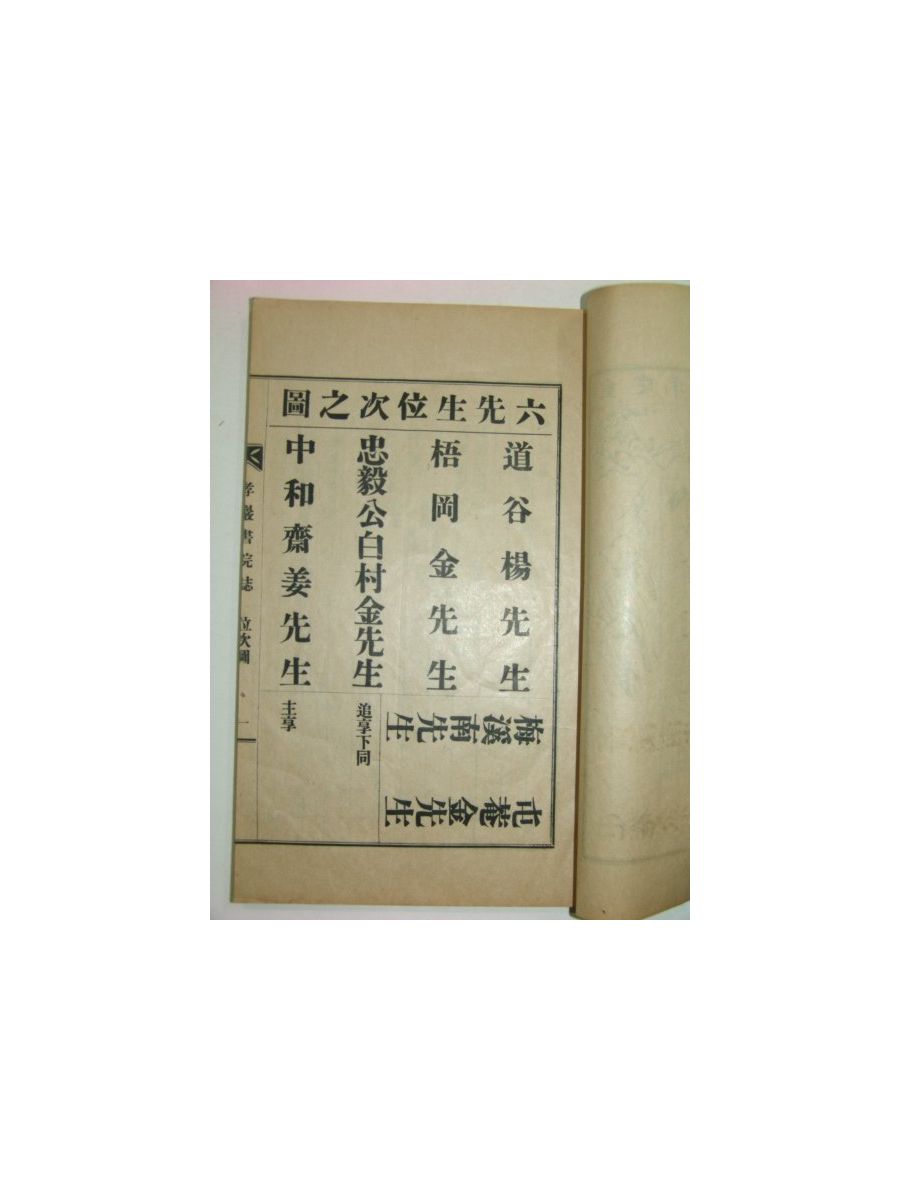 六先生位次之圖
道谷楊先生
梧岡金先生
忠毅公白村金先生
追享下同
中和齋姜先生
主享
梅溪南先生
屯菴金先生
孝巖書院誌 位次圖 一